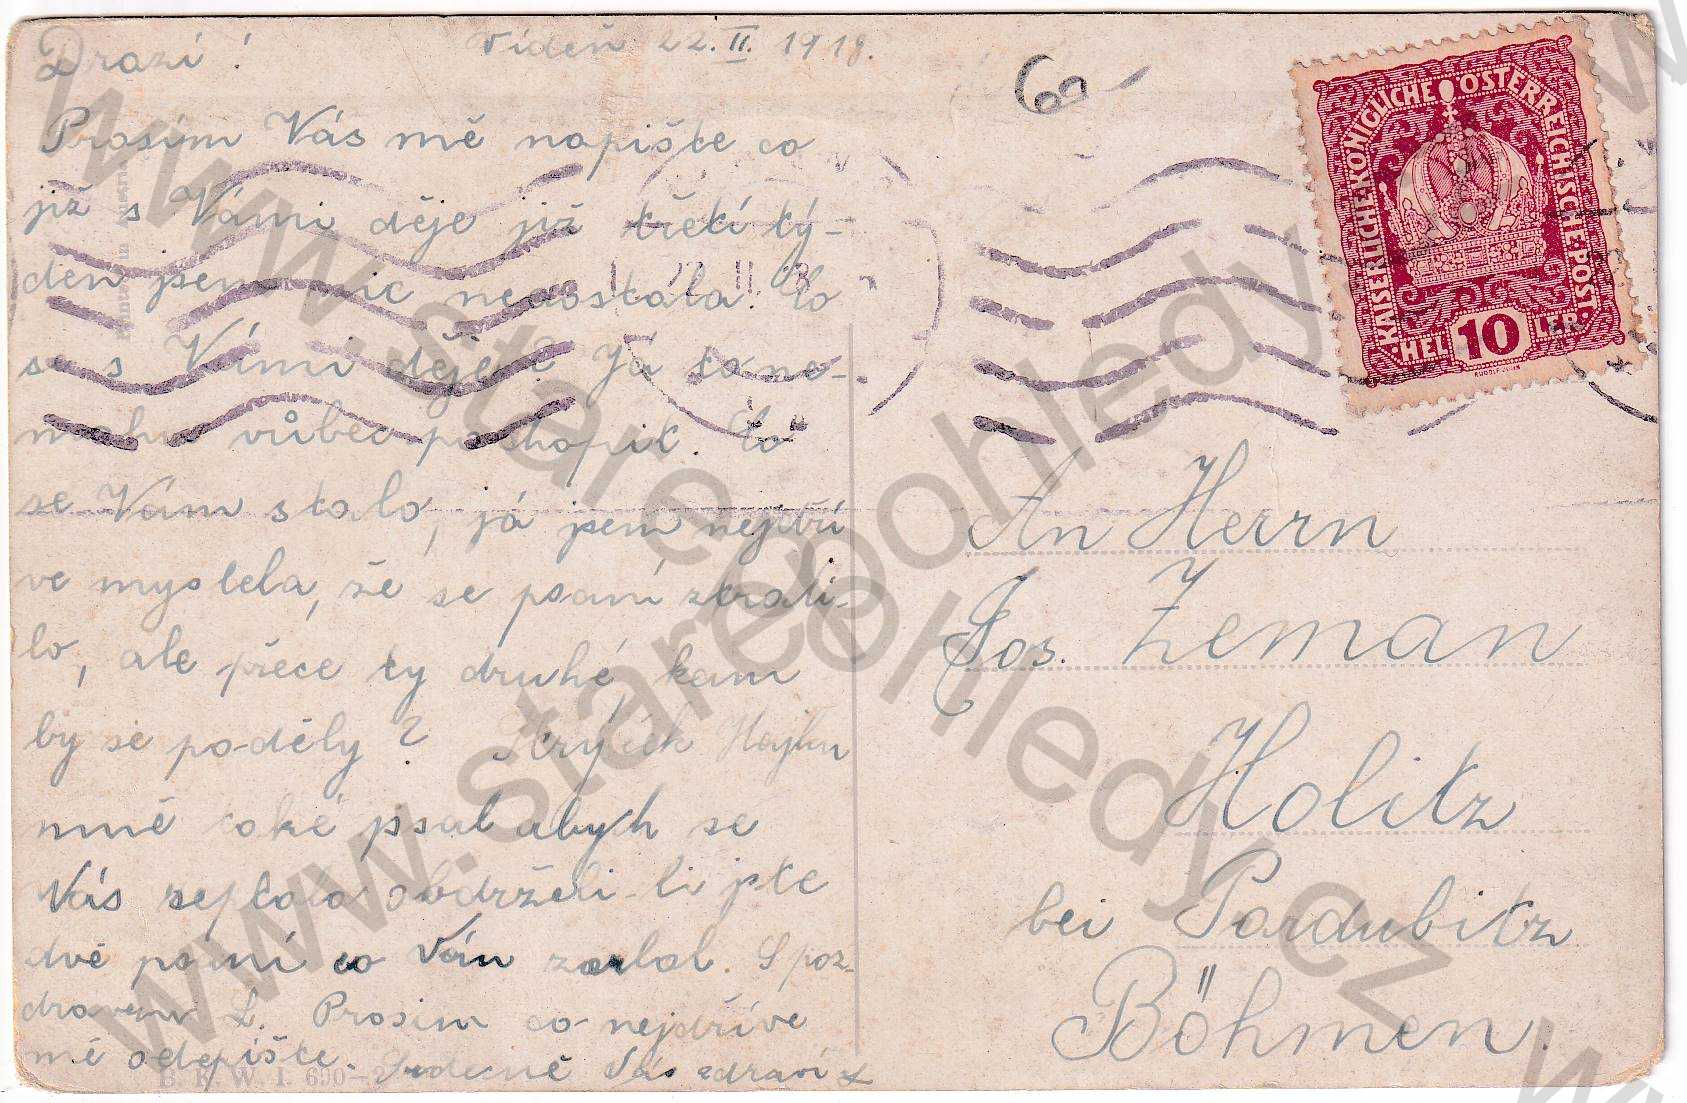 Drazí! Vídeň 22. II. 1918.
60-
Prosím Vás mě napište co
již s Vámi děje již třetí tý-
den jsem nic nedostala. Co
se s Vámi děje? Já to ne-
mohu vůbec pochopit. Co
se Vám stalo, já jsem nejdří
ve myslela, že se psaní ztrati-
lo, ale přece ty druhé, kam
by se poděly? Strýček
mně také psal abych se
Vás zeptala obdrželi-li jste
dvě psaní co Vám zaslal. S poz-
dravem L. Prosím co nejdříve
mě odepište. Srdečně Vás zdraví L
B. K. W. I. 690-2
KAISERLICHE KÖNIGLICHE ÖSTERREICHISCHE POST.
10
HELLER
An Herrn
Jos. Zeman
Holitz
bei Pardubitz
Böhmen.
www.starepohledy.cz
www.starepohledy.cz